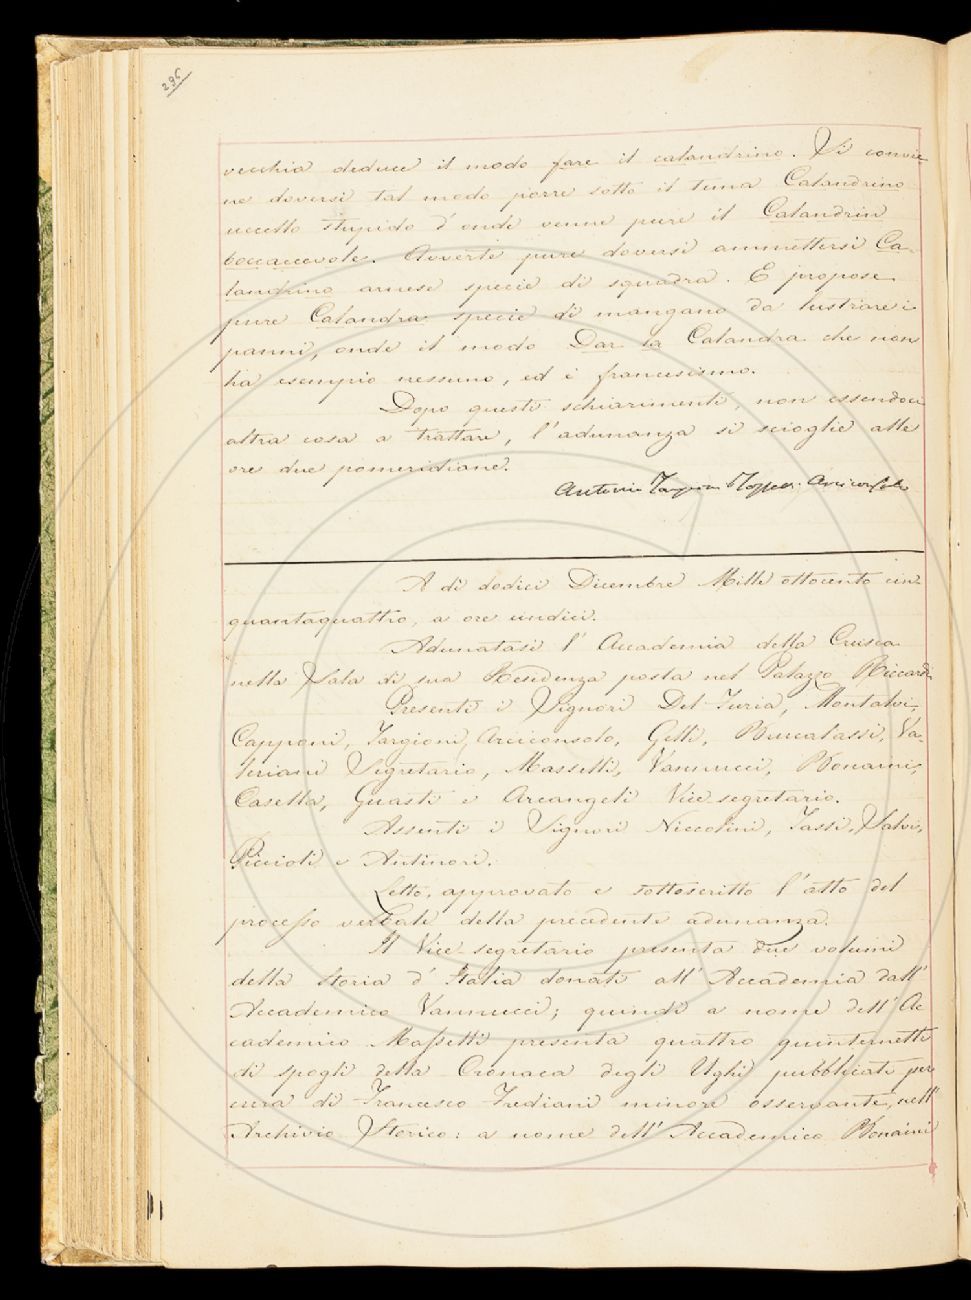 296
vecchia deduce il modo fare il calandrino. Si convie
ne doversi tal modo porre sotto il tema Calandrino
uccello stupido d'onde venne pure il Calandrin
boccaccevole. Avverte pure doversi ammettersi Ca-
landrino arnese specie di squadra. E propose
pure Calandra specie di mangano da lustrare i
panni, onde il modo Dar la Calandra che non
ha esempio nessuno, ed è francesismo.
Dopo questi schiarimenti, non essendoci
altra cosa a trattare, l'adunanza si scioglie alle
ore due pomeridiane.
Antonio Targioni Tozzetti Arciconsolo
A dì dodici Dicembre Mille ottocento cin-
quantaquattro, a ore undici.
Adunatasi l'Accademia della Crusca
nella Sala di sua Residenza posta nel Palazzo Riccardi
Presenti i Signori Del-Furia, Montalvi,
Capponi, Targioni, Arciconsolo, Gelli, Brucalassi, Va-
leriani Segretario, Masselli, Vannucci, Bonaini,
Casella, Guasti e Arcangeli Vice segretario.
Assenti i Signori Niccolini, Tassi, Salvi,
Piccioli e Antinori.
Letto, approvato e sottoscritto l'atto del
processo verbale della precedente adunanza.
Il Vice-segretario presenta due volumi
della Storia d'Italia donati all'Accademia dall'
Accademico Vannucci; quindi a nome dell'Ac
cademico Masselli presenta quattro quinternetti
di spogli della Cronaca degli Ughi pubblicati per
cura di Francesco Frediani minore osservante, nell'
Archivio Storico: a nome dell'Accademico Bonaini